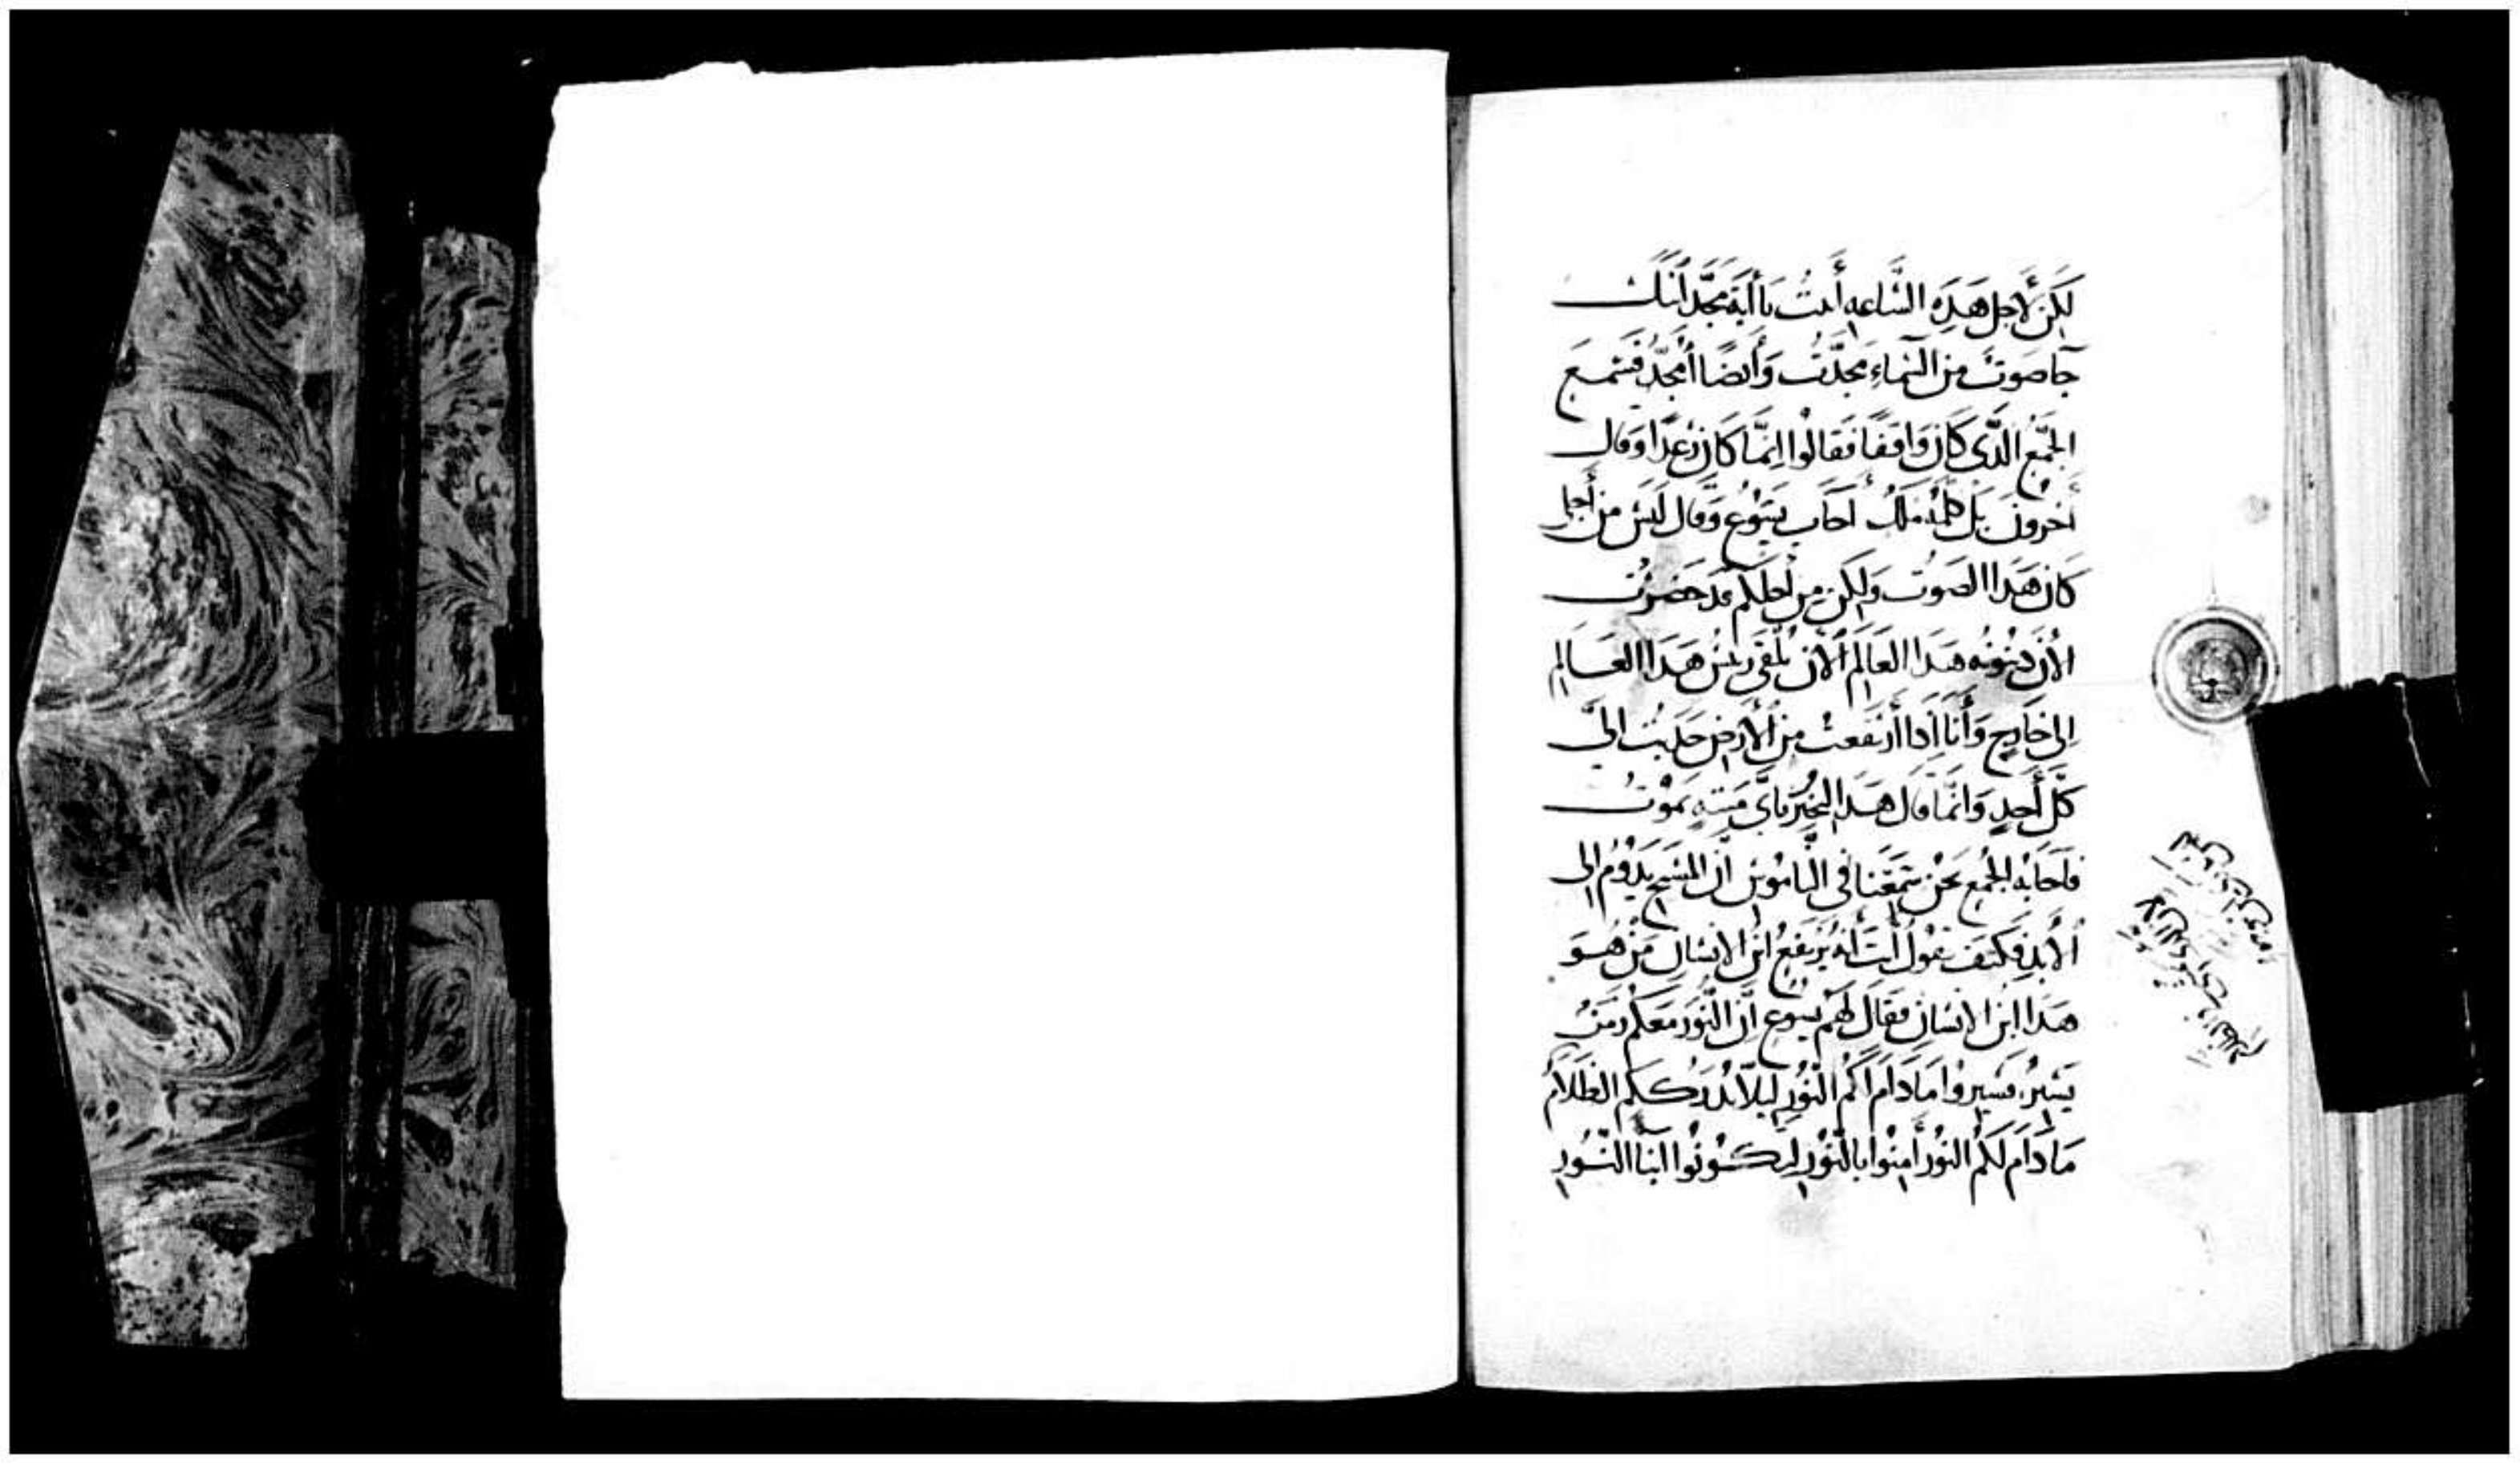 لَكِن لأَجل هَذِه السَّاعهِ أَتيتُ يَا أَبَة مَجِّد ابنَك
جَا صَوتٌ مِن السَّمَاءِ مَجَّدتُ وَأَيضًا أُمَجّدُ فَسَمِعَ
الجَمْعُ الَّذي كَانَ وَاقِفًا فَقَالُوا إِنَّمَا كَانَ رَعدًا وَقال
أَخرونَ بَل كَلَّمَهُ مَلَكٌ أَجَابَ يَسُوع وَقَال لَيسَ مِن أَجلي
كَانَ هَذَا الصَوتُ وَلَكِن مِن أَجلِكُم قَد حَضَرَتْ
الأن دَينُونَه هَذَا العَالَمِ الأَن يُلقَى رَئيسُ هَذَا العَالَمِ
إِلى خَارِج وَأَنَا إِذَا أرتَفَعتُ مِن الأَرضِ جَذَبتُ الىَّ
كُلَّ أَحدٍ وَانَّمَا قَال هَذَا لِيُخبِرَ بِأيِّ مَيتةٍ يَمُوتُ
فَأَجَابَهُ الجَمعُ نَحنُ سَمِعَنَا فِي النَّامُوسِ أنَّ المَسِيحَ يَدُوْمُ إِلى
الأَبَدِ فَكَيفَ تَقُولُ أَنتَ أَنَّهُ يَرتَفِعُ ابنُ الانسَانِ مَنْ هُوَ
هَذَا ابنُ الانسَانِ فَقَالَ لَهُم يَسُوع أنَّ النُّورَ مَعَكُم زَمَنٌ
يَسيرٌ فَسيروُا مَا دَامَ لَكُم النُّورُ لِيَلّا يُدرِكَكُم الظَلَامُ
مَا دَامَ لَكُم النُورُ أَمِنُوا بِالنُّورِ لِتَكُونُوا أَبنَا النُّورِ